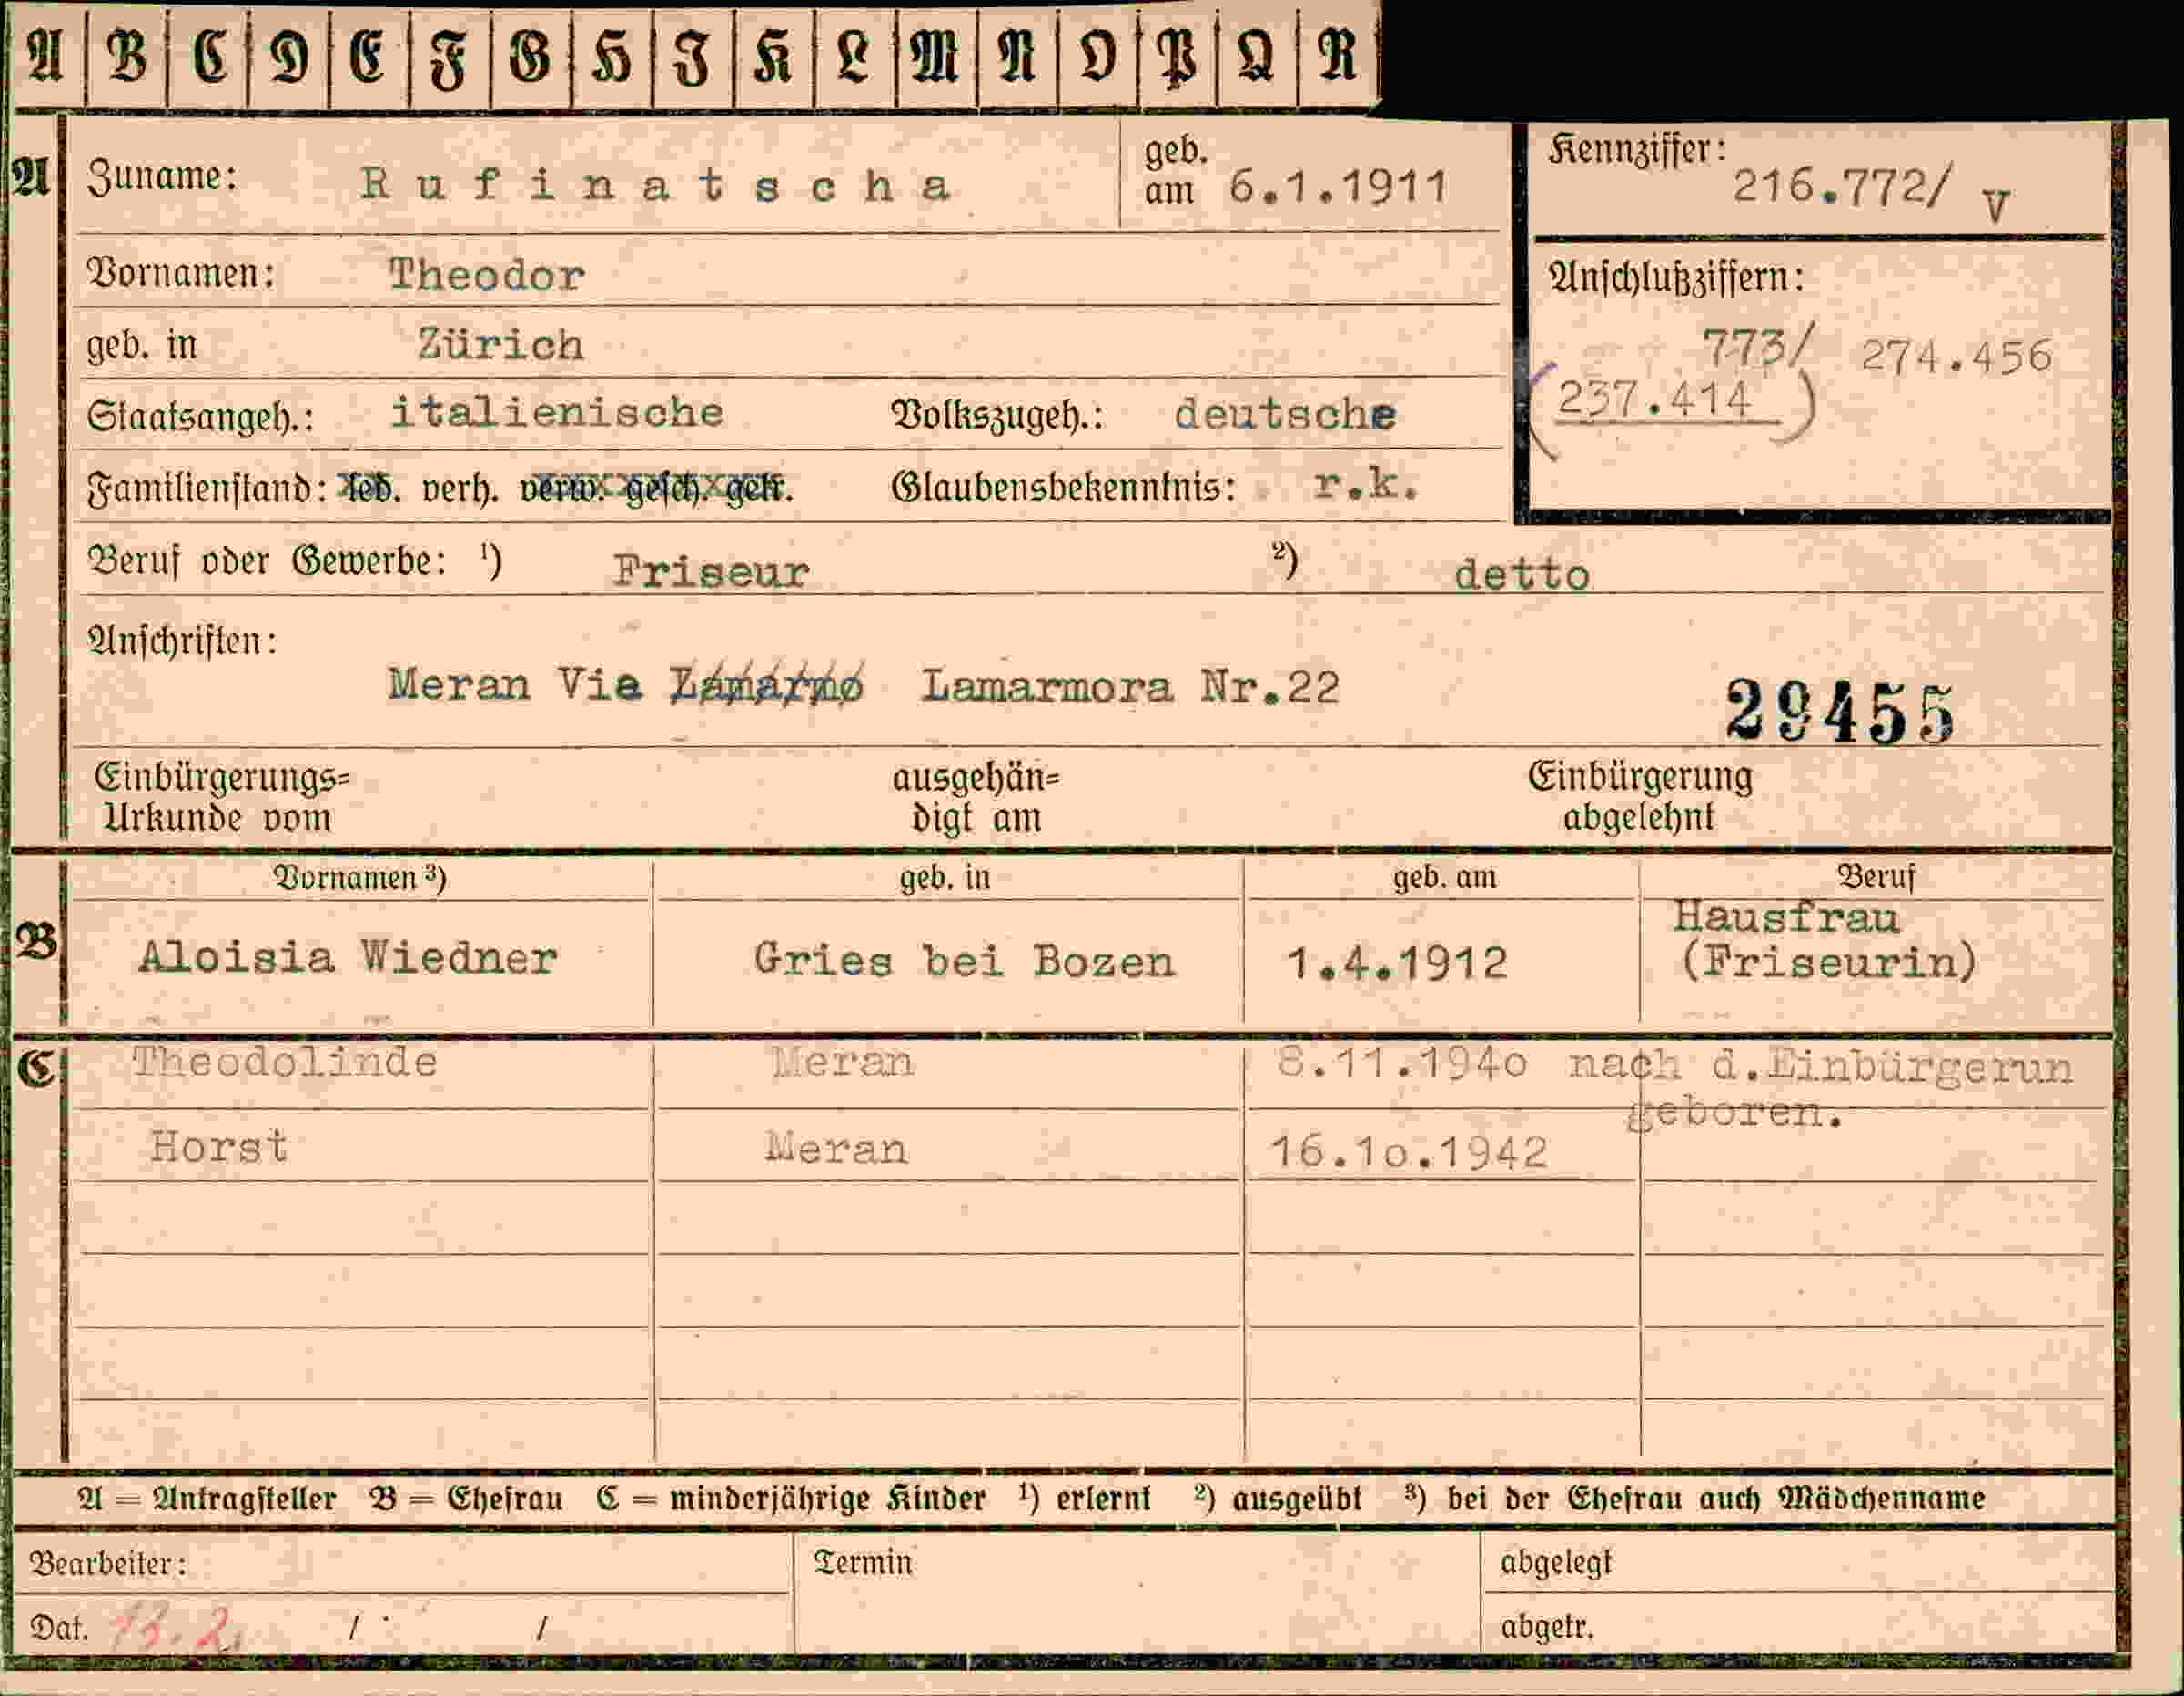 A B C D E F G H I K L M N O P Q R
A Zuname: Rufinatscha geb. am 6.1.1911 Kennziffer: 216.772/ V
Vornamen: Theodor Anschlußziffern:
geb. in Zürich 773/ 274.456
Staatsangeh.: italienische Volkszugeh.: deutsche (237.414)
Familienstand: led. verh. verw. gesch. getr. Glaubensbekenntnis: r.k.
Beruf oder Gewerbe: ¹) Friseur ²) detto
Anschriften:
Meran Via Lamarmora Nr.22 29455
Einbürgerungs= ausgehän= Einbürgerung
Urkunde vom digt am abgelehnt
Vornamen ³) geb. in geb. am Beruf
Hausfrau
B Aloisia Wiedner Gries bei Bozen 1.4.1912 (Friseurin)
C Theodolinde Meran 8.11.194o nach d.Einbürgerun
geboren.
Horst Meran 16.1o.1942
A = Antragsteller B = Ehefrau C = minderjährige Kinder ¹) erlernt ²) ausgeübt ³) bei der Ehefrau auch Mädchenname
Bearbeiter: Termin abgelegt
Dat. 13.2. / / abgetr.